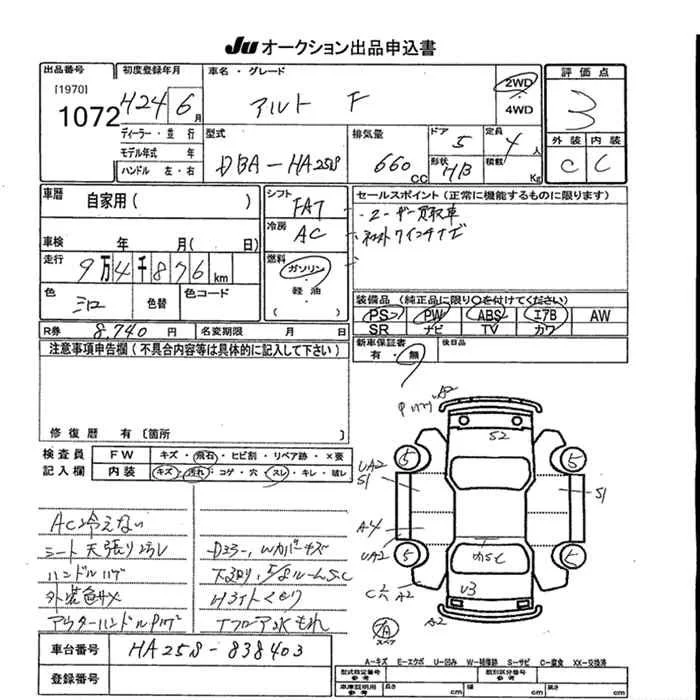 Ju オークション出品申込書
出品番号
[1970]
1072
初度登録年月
H24 6月
ディーラー・並行
モデル年式 年
ハンドル 左・右
車名・グレード
アルト F
2WD
4WD
型式
DBA-HA25S
排気量
660cc
ドア
5
形状
HB
定員
4人
積載
Kg
評価点
3
外装 内装
C C
車歴
自家用( )
車検 年 月( 日)
走行
9万4千876km
色
シロ
色替
色コード
シフト
FAT
冷房
AC
燃料
ガソリン
軽油
( )
セールスポイント(正常に機能するものに限ります)
・ユーザー買取車
装備品(純正品に限り○を付けてください)
PS PW ABS エアB AW
SR ナビ TV カワ
R券 8,740円 名変期限 月 日
新車保証書
有・無
後日品
注意事項申告欄(不具合内容等は具体的に記入して下さい)
修復歴 有[箇所 ]
検査員
記入欄
FW キズ・飛石・ヒビ割・リペア跡・×要
内装 キズ・汚れ・コゲ・穴・スレ・キレ・破レ
AC冷えない
シート天張り汚レ
ハンドルハゲ
外装色サメ
アウターハンドルPハゲ
Dミラー、Wカバーキズ
下廻り、E/gルームS.C
Hライトくもり
Tフロア水もれ
A2
S2
5 5
UA2
S1
S1
A4
UA2
5 5
C穴 A2
U3
A2
有
スペア
車台番号 HA25S-838403
登録番号
A-キズ E-エクボ U-凹み W-補修跡 S-サビ C-腐食 XX-交換済
型式指定番号
参考
類別区分番号
参考
車庫証明用
参考
長さ cm 幅 cm 高さ cm